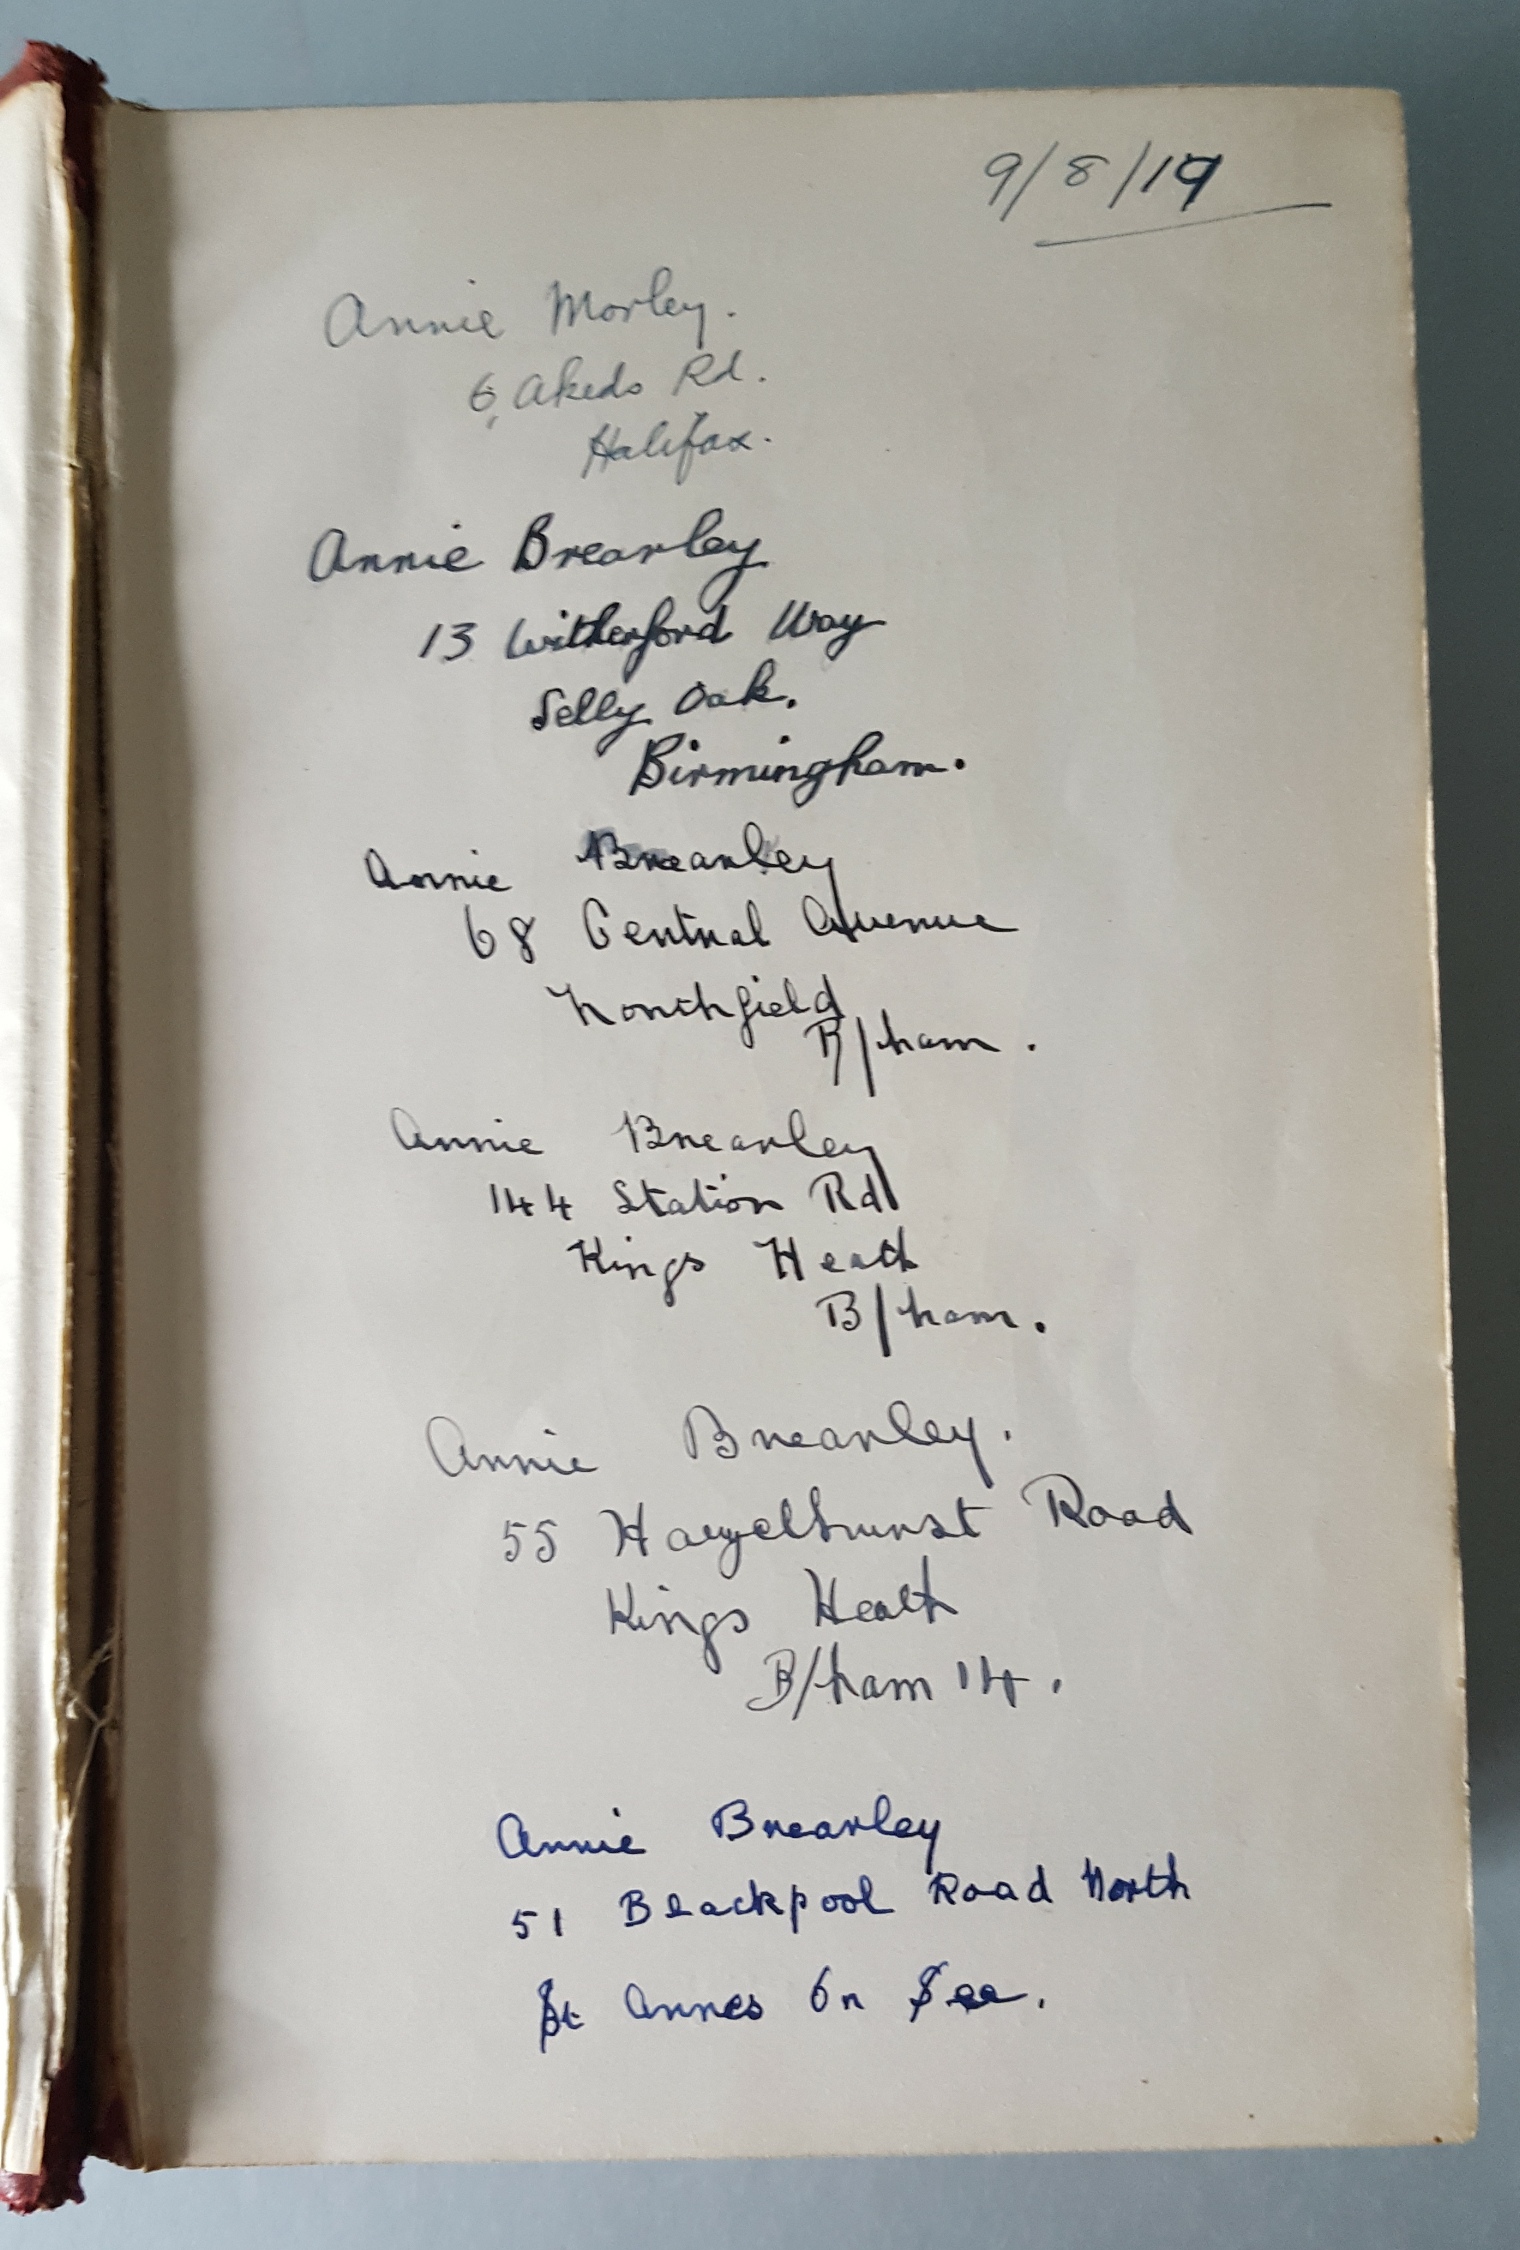 9/8/19
Annie Morley.
6, Akeds Rd.
Halifax.
Annie Brearley
13 Witherford Way
Selly Oak.
Birmingham.
Annie Brearley
68 Central Avenue
Northfield
B/ham.
Annie Brearley
144 Station Rd
Kings Heath
B/ham.
Annie Brearley.
55 Hazelhurst Road
Kings Heath
B/ham 14.
Annie Brearley
51 Blackpool Road North
St Annes On Sea.